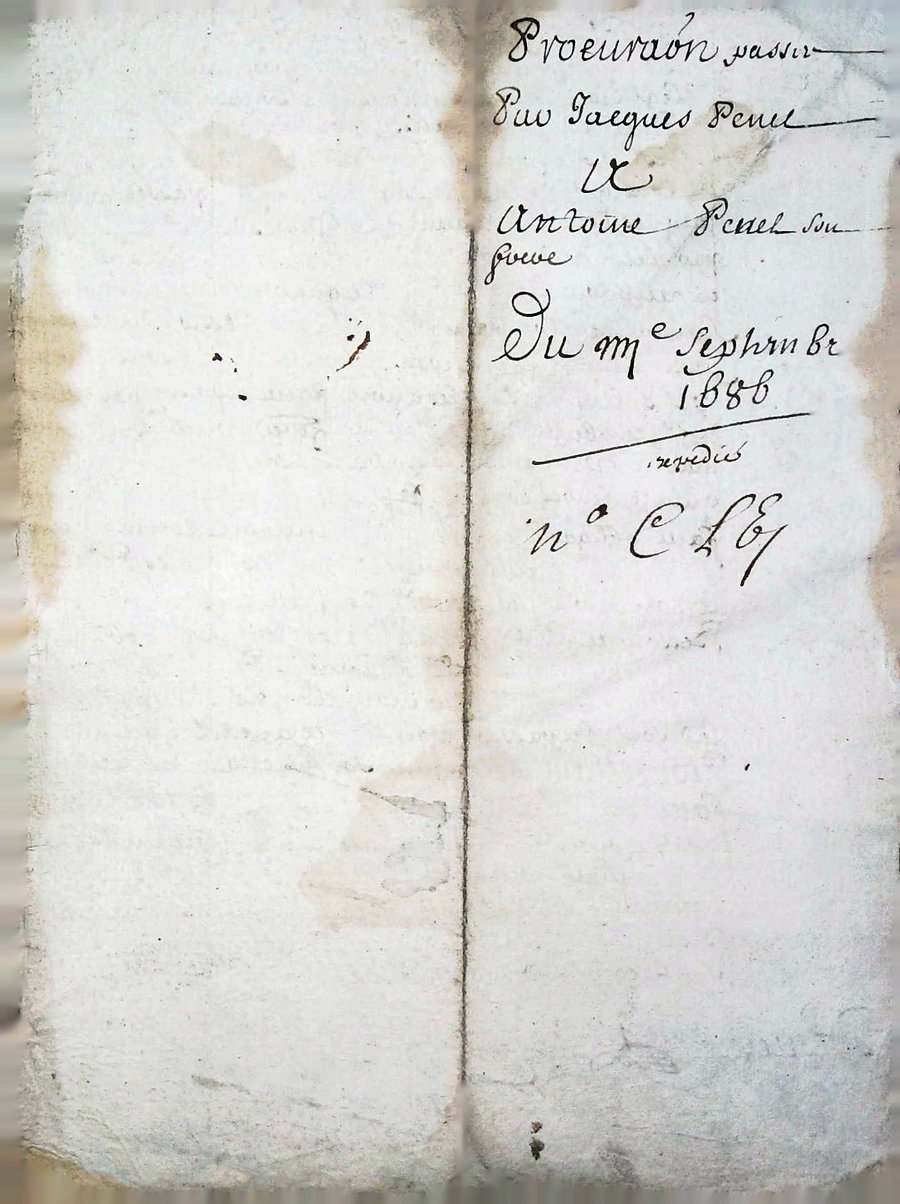 Procuraõn passée
Par Jacques Penel
A
Antoine Penel son
frere
Du me Septembr
1686
expédiée
n° C L